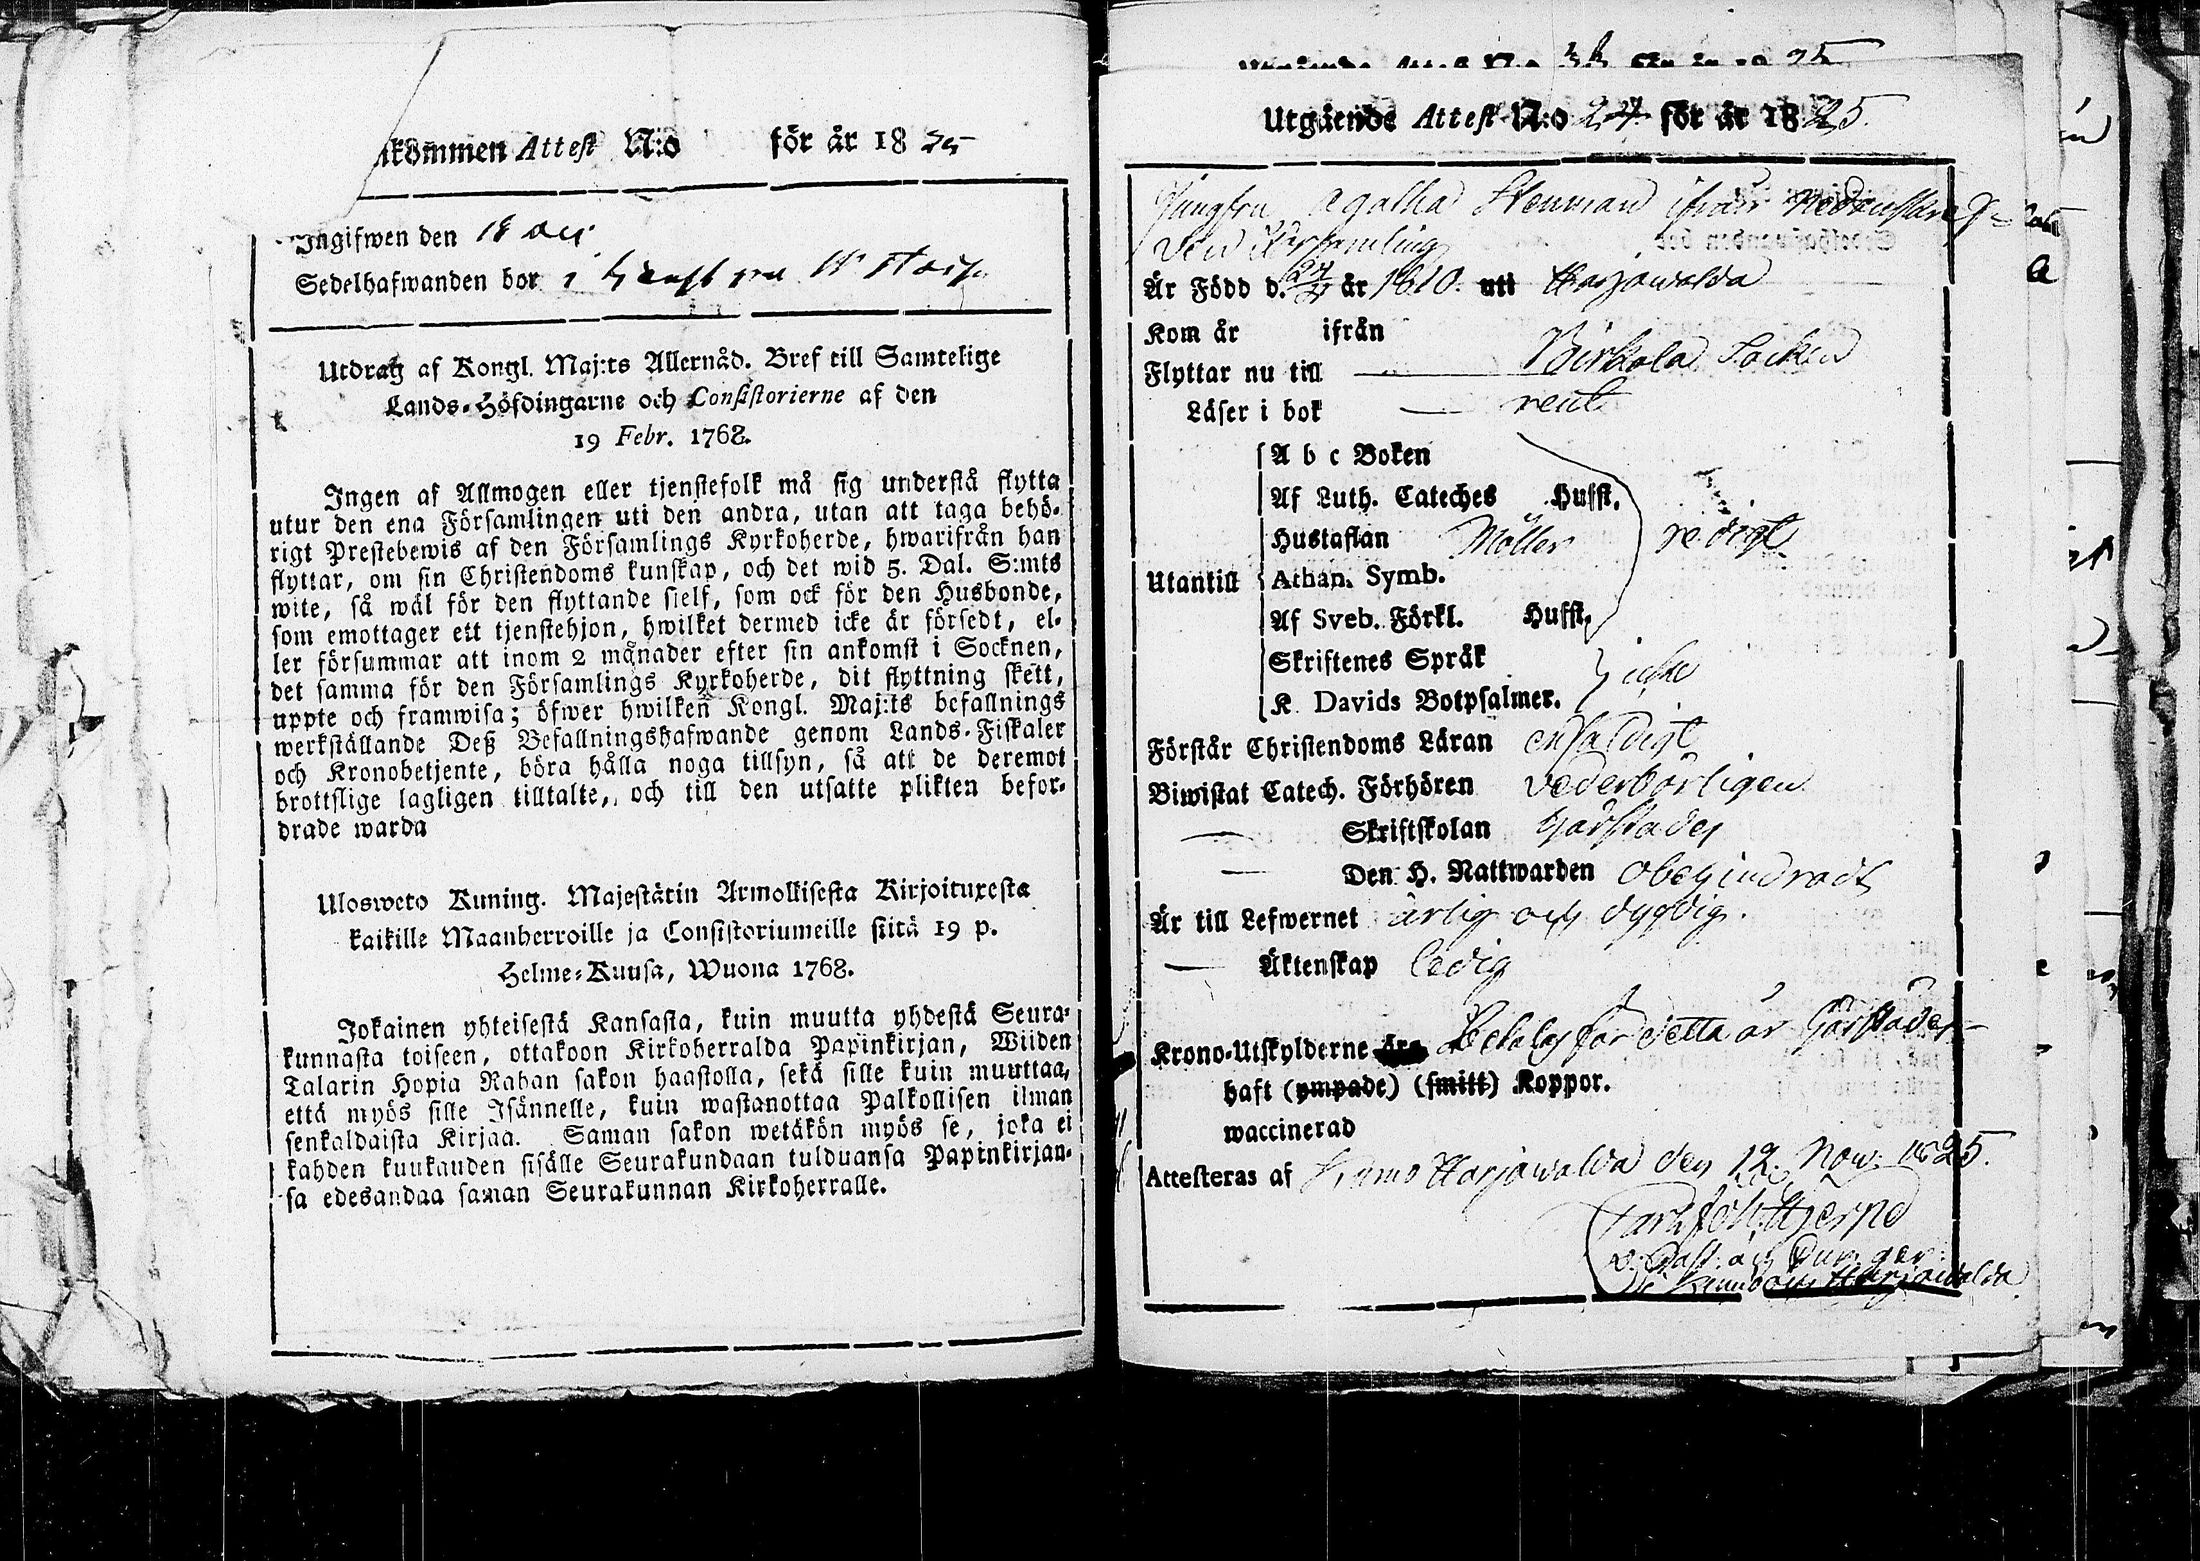 kommen Attest N:o för år 18 25
Ingifwen den 18 Dec.
Sedelhafwanden bor i
Utdrag af Kongl. Maj:ts Allernåd. Bref till Samtelige
Lands-Höfdingarne och Consistorierne af den
19 Febr. 1768.
Ingen af Allmogen eller tjenstefolk må sig understå flytta
utur den ena Församlingen uti den andra, utan att taga behö-
rigt Prestebewis af den Församlings Kyrkoherde, hwarifrån han
flyttar, om sin Christendoms kunskap, och det wid 5. Dal. S:mts
wite, så wäl för den flyttande sielf, som ock för den Husbonde,
som emottager ett tjenstehjon, hwilket dermed icke är försedt, el-
ler försummar att inom 2 månader efter sin ankomst i Socknen,
det samma för den Församlings Kyrkoherde, dit flyttning skett,
uppte och framwisa; öfwer hwilken Kongl. Maj:ts befallnings
werkställande Deß Befallningshafwande genom Lands-Fiskaler
och Kronobetjente, böra hålla noga tillsyn, så att de deremot
brottslige lagligen tilltalte, och till den utsatte plikten befor-
drade warda
Ulosweto Kuning. Majestätin Armollisesta Kirjoituxesta
kaikille Maanherroille ja Consistoriumeille siitä 19 p.
Helme-Kuusa, Wuona 1768.
Jokainen yhteisestä Kansasta, kuin muutta yhdestä Seura-
kunnasta toiseen, ottakoon Kirkoherralda Papinkirjan, Wiiden
Talarin Hopia Rahan sakon haastolla, sekä sille kuin muuttaa,
että myös sille Isännelle, kuin wastanottaa Palkollisen ilman
senkaldaista Kirjaa. Saman sakon wetäkön myös se, joka ei
kahden kuukauden sisälle Seurakundaan tulduansa Papinkirjan-
sa edesandaa saman Seurakunnan Kirkoherralle.
Utgående Attest N:o 36 för år 18 25
Utgående Attest N:o 24 för år 18 25.
Jungfru Agatha Stenman ifrån Nedanskref-
ven Församling
Är Född d. 24 år 1810. uti Harjawalda
Kom år ifrån
Flyttar nu till Birkala Socken
Läser i bok rent
Utantill
A b c Boken
Af Luth. Cateches Hufst.
Hustaflan Möller redigt
Athan. Symb.
Af Sveb. Förkl. Hufst.
Skriftenes Språk
K. Davids Botpsalmer. icke
Förstår Christendoms Läran enfaldigt
Biwistat Catech. Förhören vederbörligen
Skriftskolan Gårstades
Den H. Nattwarden obehindradt
Är till Lefwernet ärlig och dygdig.
Äktenskap ledig
Krono-Utskylderne äro Betalas för detta år Gårstädes
haft (ympade) (smitt) Koppor.
waccinerad
Attesteras af Kumo Harjawalda den 12. Nov: 1825.
Carl Joh. Hjerpe
v. Past. och
i Kumo och Harjawalda